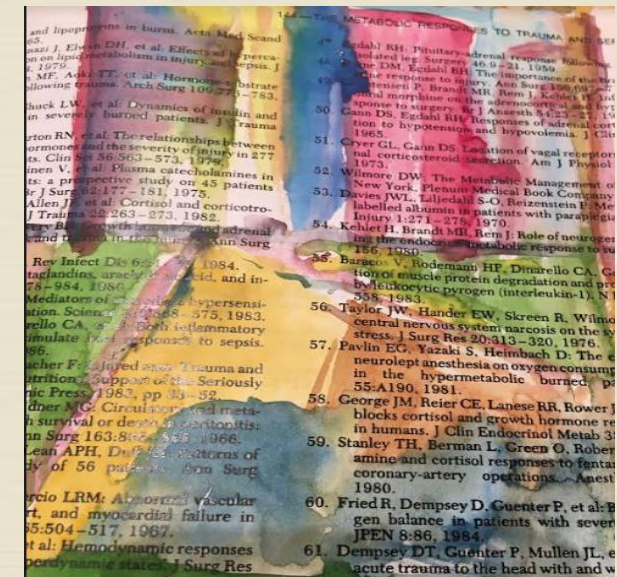 THE METABOLIC RESPONSES TO TRAUMA AND
and lipoproteins in burns. Acta Med Scand
65.
Elwyn DH, et al: Effects of
on lipid metabolism in injury and sepsis. J
1979.
MF, Aoki TT, et al: Hormone-substrate
following trauma. Arch Surg 109:
LW, et al: Dynamics of insulin and
in severely burned patients. J Trauma
RN, et al: The relationships between
hormones and the severity of injury in 277
ts. Clin Sci 56:563–573, 1979.
V, et al: Plasma catecholamines in
ts: a prospective study on 45 patients
r J Surg 62:177–181, 1975.
Allen JP, et al: Cortisol and corticotro-
J Trauma 22:263–273, 1982.
Growth adrenal
and Ann Surg
Rev Infect Dis 1984.
taglandins, acid, and in-
78–984, 1986.
Mediators of hypersensi-
ation. Science 575, 1983.
rello CA, Both inflammatory
timulate responses to sepsis.
86.
acher F: Injured man: Trauma and
utrition: Support of the Seriously
ic Press, 1983, pp 33–52.
dner MG: Circulatory and meta-
h survival or death in peritonitis:
nn Surg 163:866 1966.
Lean APH, Patterns of
dy of 56 patients. Ann Surg
rcio LRM: Abnormal vascular
rt, and myocardial failure in
55:504–517, 1967.
et al: Hemodynamic responses
perdynamic states. J Surg Res
Egdahl RH: Pituitary-adrenal response following
isolated leg. Surgery 46:9–21, 1959.
DM, Egdahl RH: The importance of the
response to injury. Ann Surg
P, Brandt MR, Rem J, Kehlet H:
morphine on the adrenocortical and
sponse to surgery. Br J Anaesth 54:23–27,
50. Gann DS, Egdahl RH: Responses of adrenal cort
to hypotension and hypovolemia. J
1965.
51. Cryer GL, Gann DS: Location of vagal receptor
nal corticosteroid secretion. Am J Physiol
1973.
52. Wilmore DW: The Metabolic Management of
New York, Plenum Medical Book Company
53. Davies JWL, Liljedahl S-O, Reizenstein P: Me
labelled albumin in patients with paraplegia
Injury 1:271–278, 1970.
54. Kehlet H, Brandt MR, Rem J: Role of neurogen
ing the endocrine-metabolic response to su
156, 1980.
55. Baracos V, Rodemann HP, Dinarello CA, G
tion of muscle protein degradation and pro
by leukocytic pyrogen (interleukin-1). N
558, 1983.
56. Taylor JW, Hander EW, Skreen R, Wilmo
central nervous system narcosis on the sy
stress. J Surg Res 20:313–320, 1976.
57. Pavlin EG, Yazaki S, Heimbach D: The e
neurolept anesthesia on oxygen consump
in the hypermetabolic burned pa
55:A190, 1981.
58. George JM, Reier CE, Lanese RR, Rower J
blocks cortisol and growth hormone re
in humans. J Clin Endocrinol Metab 3
59. Stanley TH, Berman L, Green O, Rober
amine and cortisol responses to fentan
coronary-artery operations. Anest
1980.
60. Fried R, Dempsey D, Guenter P, et al: B
gen balance in patients with sever
JPEN 8:86, 1984.
61. Dempsey DT, Guenter P, Mullen JL, e
acute trauma to the head with and w